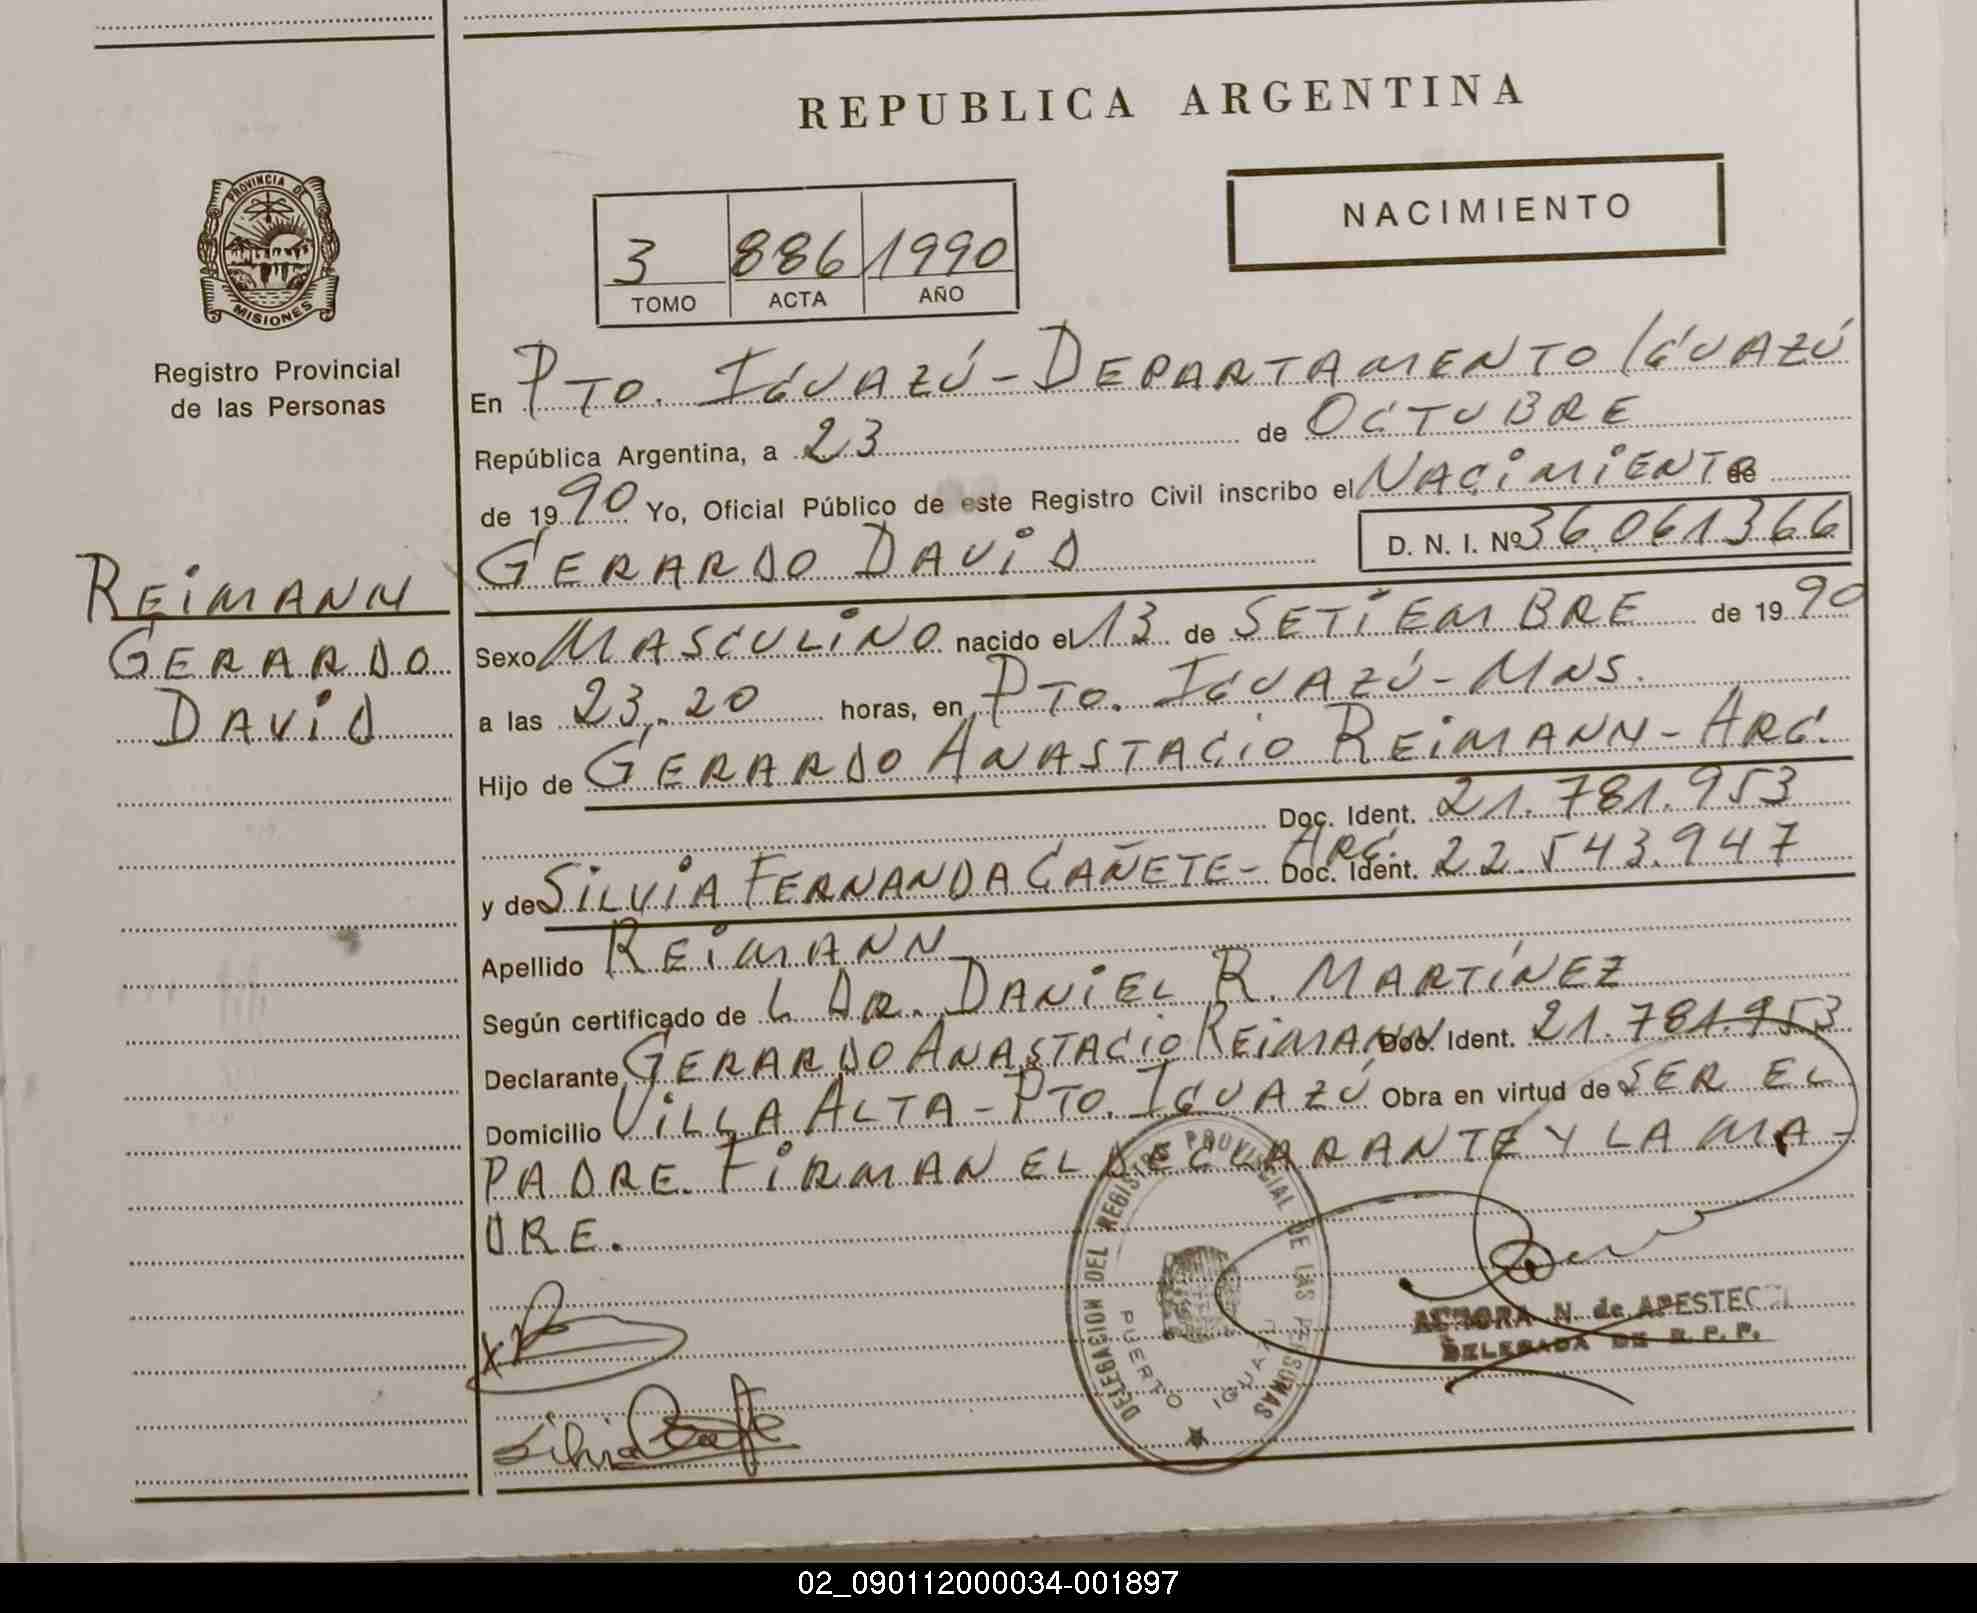 REPUBLICA ARGENTINA
PROVINCIA DE
MISIONES
Registro Provincial
de las Personas
NACIMIENTO
3 886 1990
TOMO ACTA AÑO
REIMANN
GERARDO
DAVID
En PTO. IGUAZÚ - DEPARTAMENTO IGUAZÚ
República Argentina, a 23 de OCTUBRE
de 1990 Yo, Oficial Público de este Registro Civil inscribo el NACIMIENTO de
GERARDO DAVID D. N. I. Nº 36.061366
Sexo MASCULINO nacido el 13 de SETIEMBRE de 1990
a las 23,.20 horas, en PTO. IGUAZÚ - MNS.
Hijo de GERARDO ANASTACIO REIMANN - ARG.
Doc. Ident. 21.781.953
y de SILVIA FERNANDA CAÑETE - ARG. Doc. Ident. 22.543.947
Apellido REIMANN
Según certificado de L DR. DANIEL R. MARTÍNEZ
Declarante GERARDO ANASTACIO REIMANN Doc. Ident. 21.781.953
Domicilio VILLA ALTA - PTO. IGUAZÚ Obra en virtud de SER EL
PADRE. FIRMAN EL DECLARANTE Y LA MA-
DRE.
DELEGACION DEL REGISTRO PROVINCIAL DE LAS PERSONAS
PUERTO IGUAZU
N. de APESTEC
DELEGADA DE R. P. P.
Silvia
02_090112000034-001897